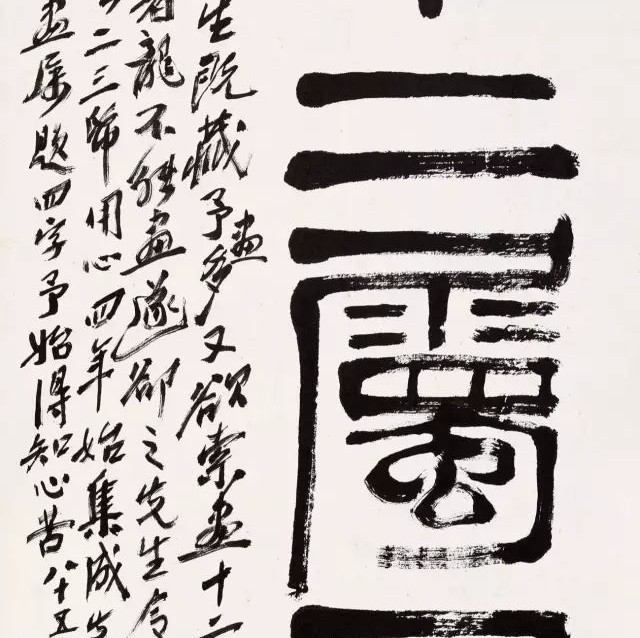 二屬
生既藏予畫多又欲索畫十二
龍不能畫遂卻之先生令
二三歸用心四年始集成
畫屬題四字予始得知心苦八十五